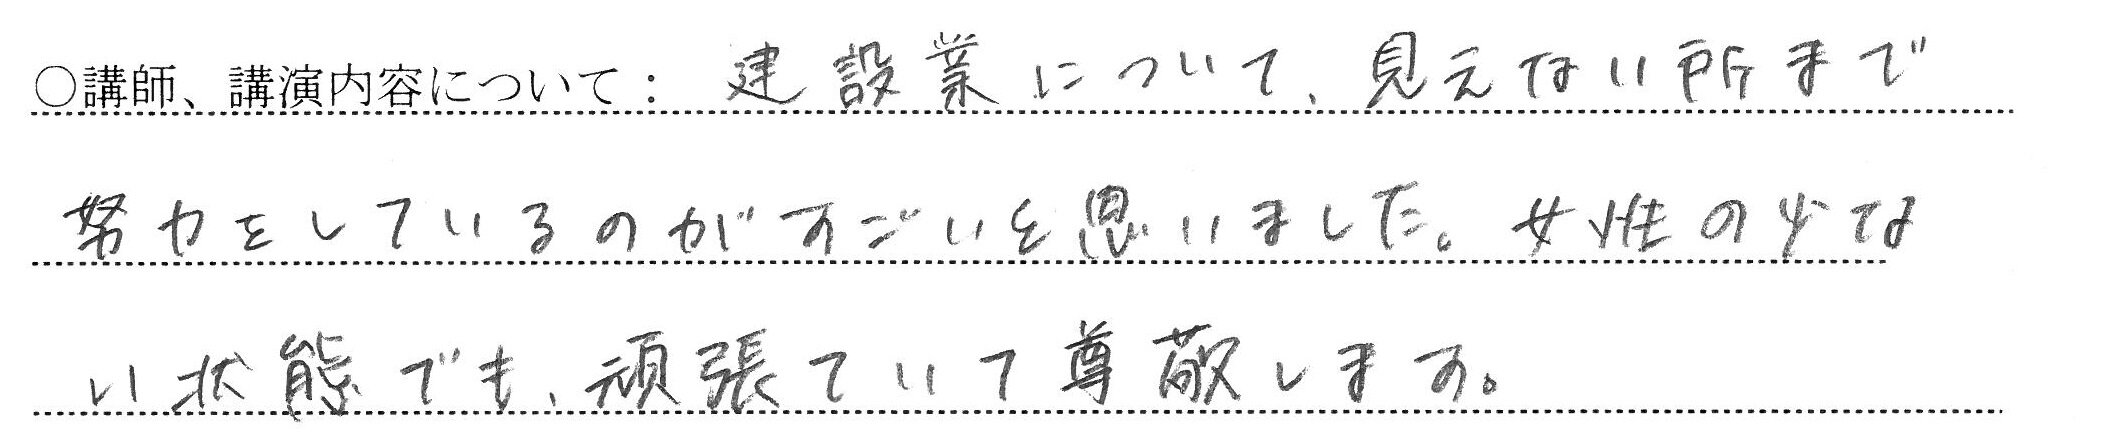 ○講師、講演内容について： 建設業について、見えない所まで
努力をしているのがすごいと思いました。女性の少な
い状態でも、頑張ていて尊敬します。